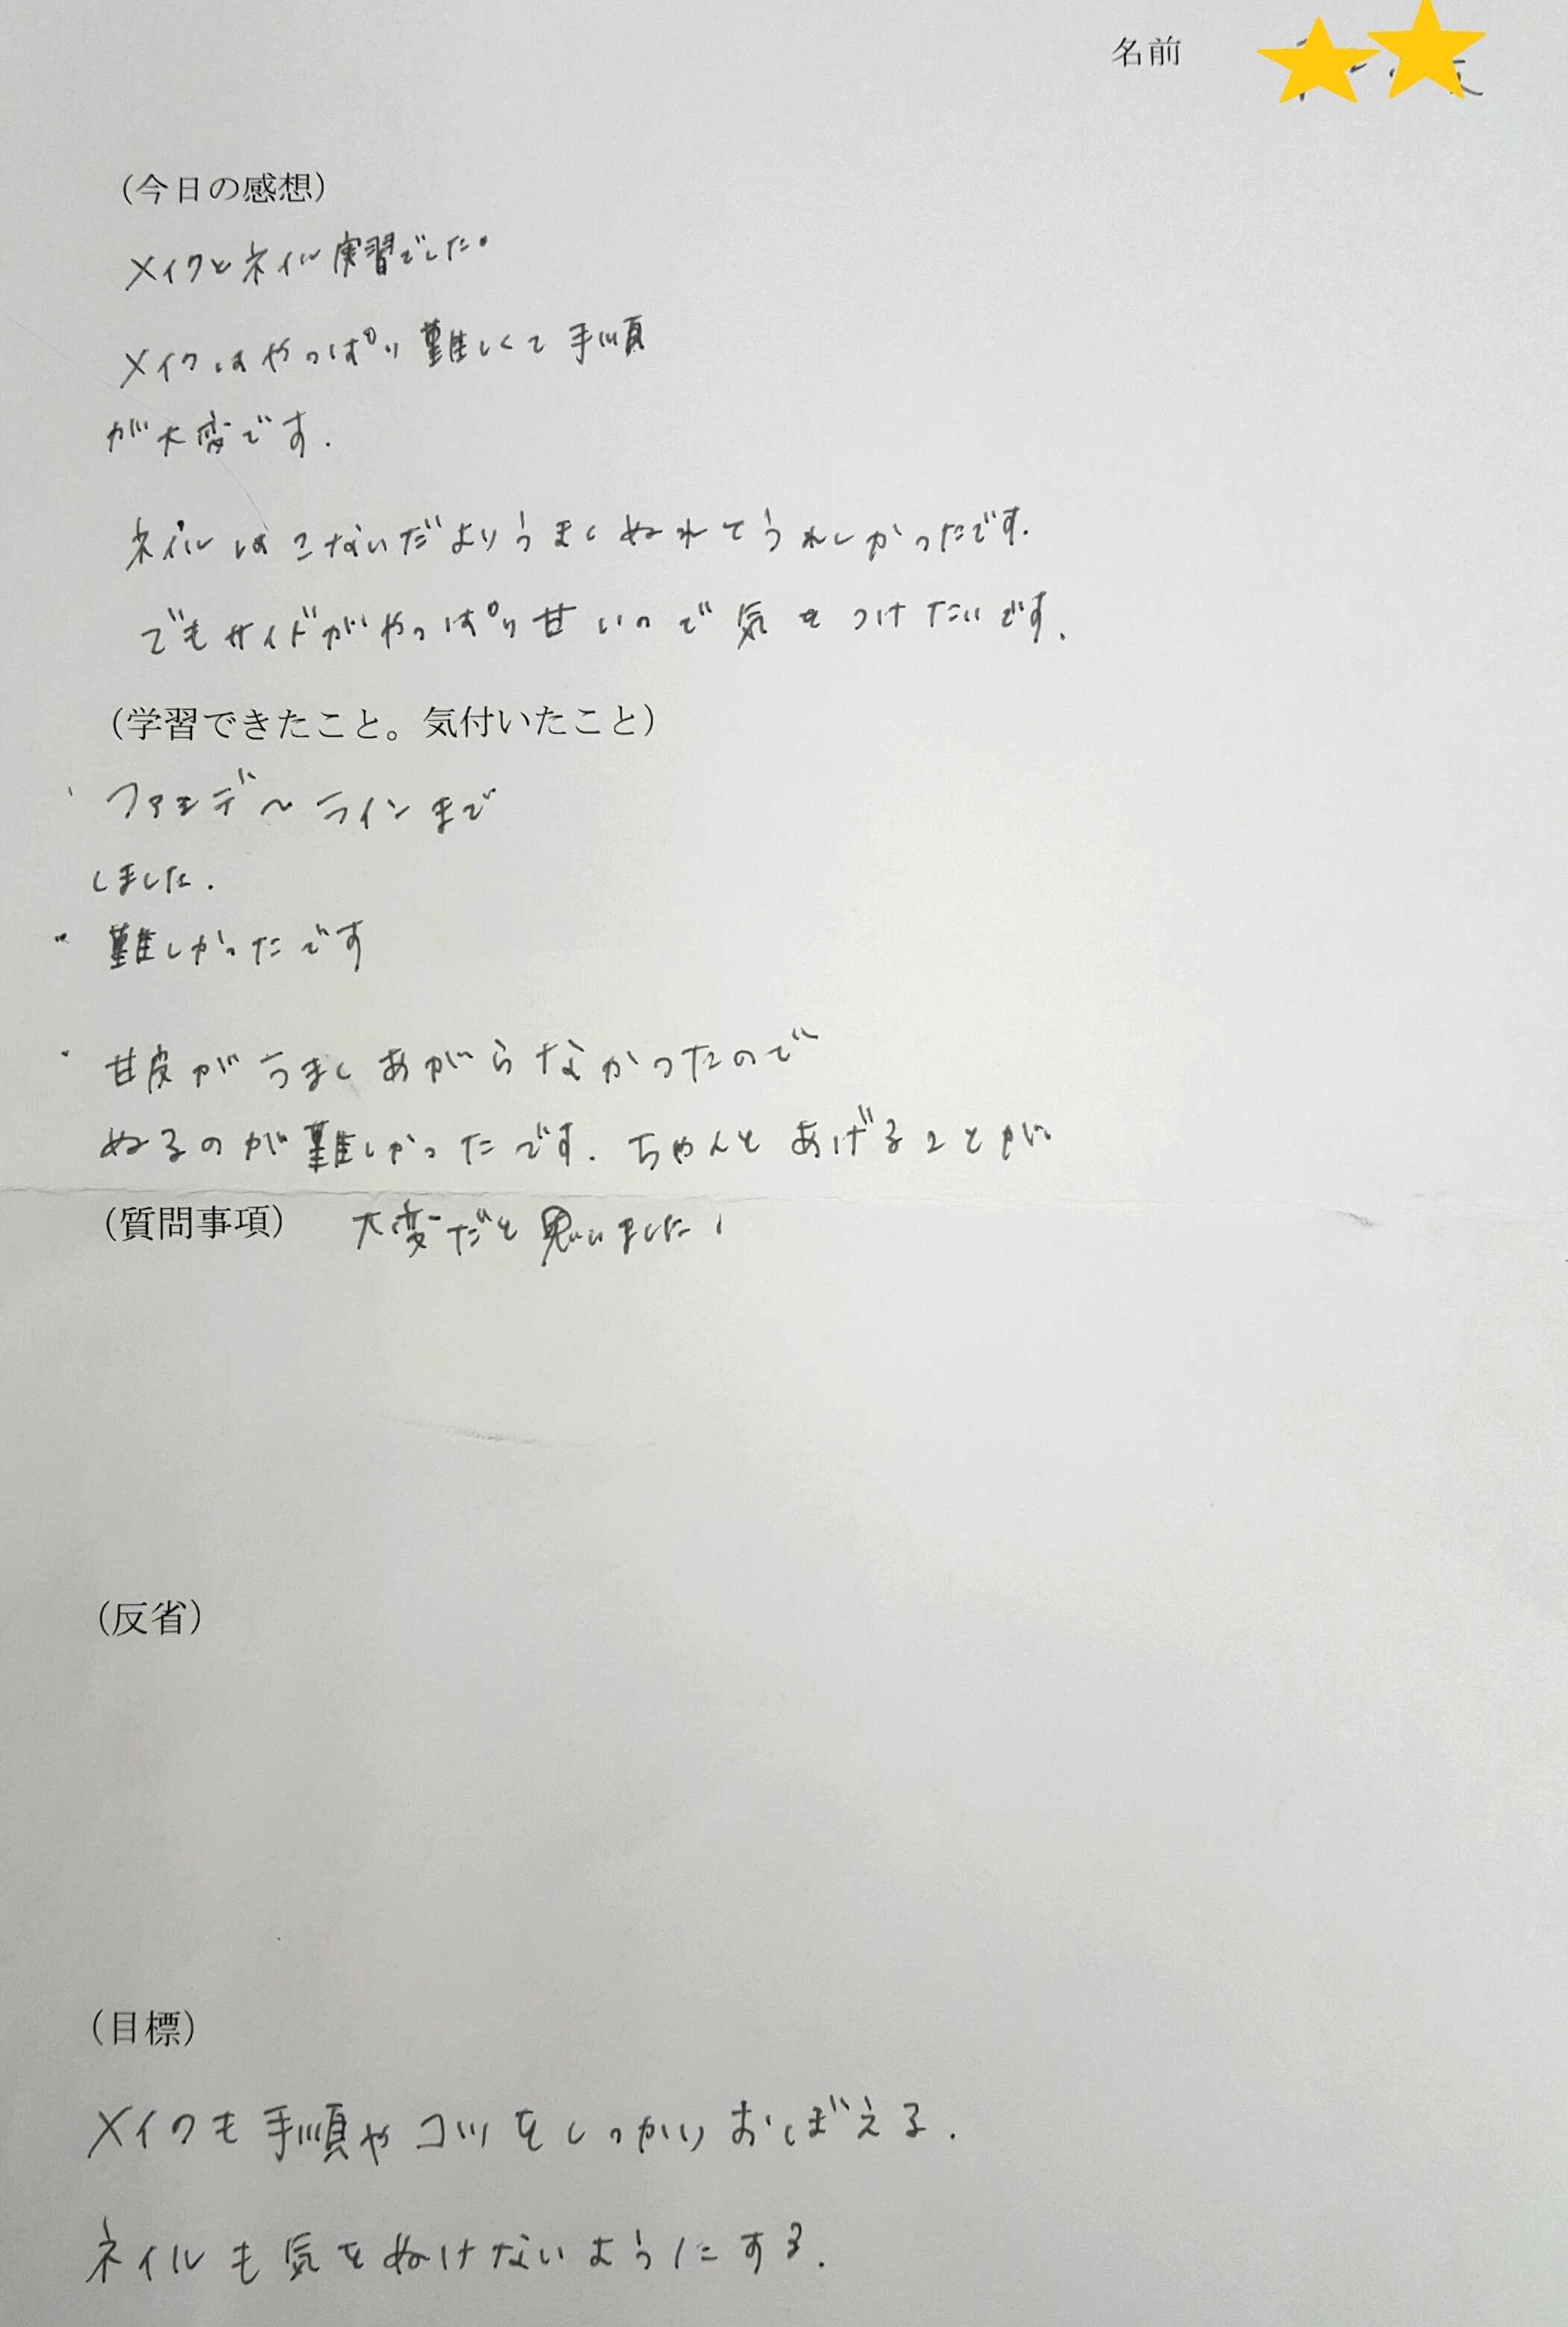 名前
（今日の感想）
メイクとネイル実習でした。
メイクはやっぱり難しくて手順
が大変です.
ネイルはこないだよりうまくぬれてうれしかったです.
でもサイドがやっぱり甘いので気をつけたいです.
（学習できたこと。気付いたこと）
・ファンデ〜ラインまで
しました.
・難しかったです
・甘皮がうまくあがらなかったので
ぬるのが難しかったです. ちゃんとあげることが
（質問事項） 大変だと思いました.
（反省）
（目標）
メイクも手順やコツをしっかりおぼえる.
ネイルも気をぬけないようにする.